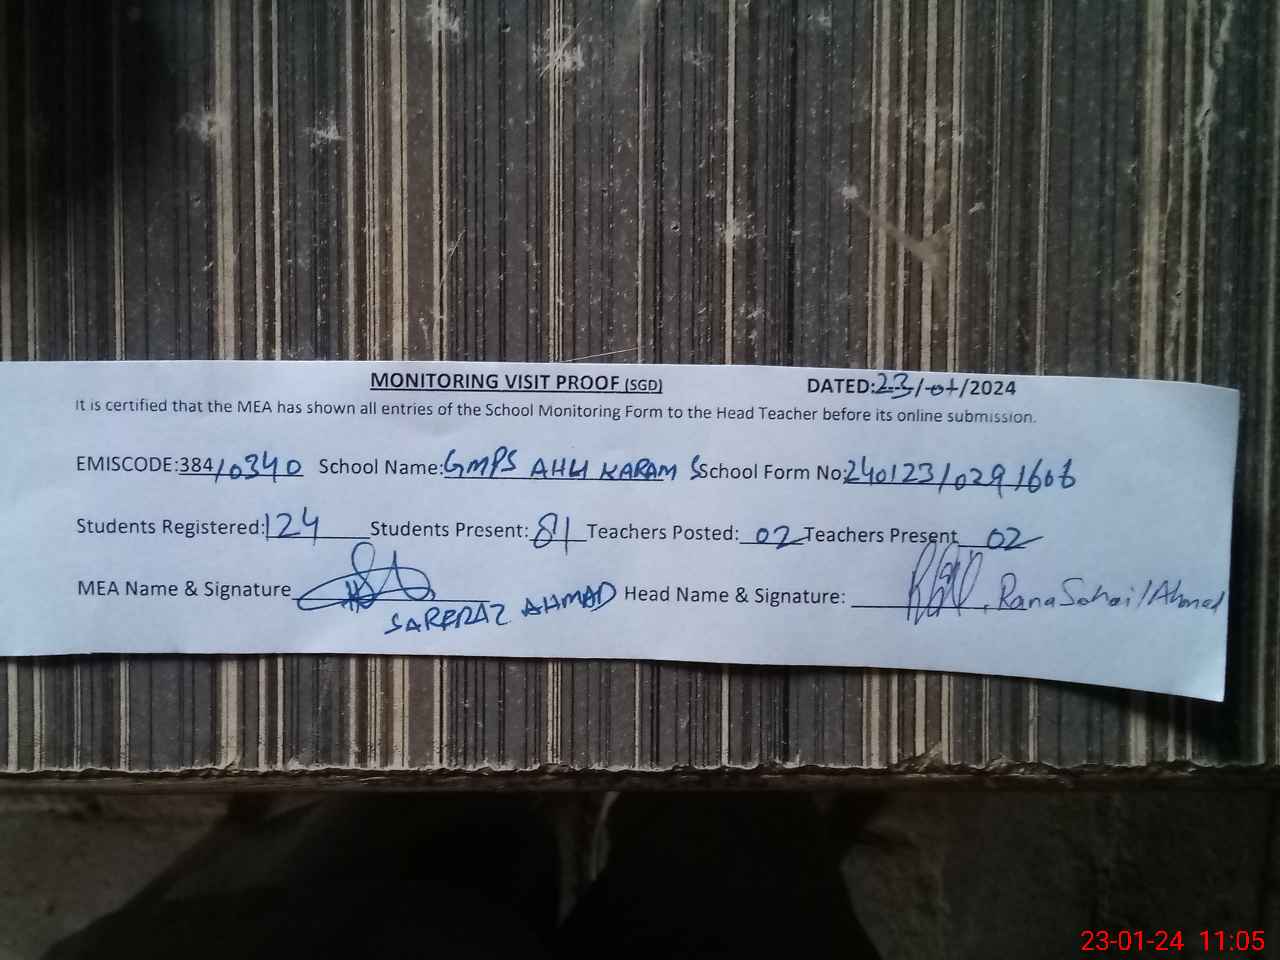 MONITORING VISIT PROOF (SGD) DATED:23/01/2024
It is certified that the MEA has shown all entries of the School Monitoring Form to the Head Teacher before its online submission.
EMISCODE:384/0340 School Name:GMPS AHLI KARAM S School Form No:240123/0291606
Students Registered:124 Students Present:81 Teachers Posted: 02 Teachers Present 02
MEA Name & Signature SARFRAZ AHMAD Head Name & Signature: Rana Sohail Ahmad
23-01-24 11:05